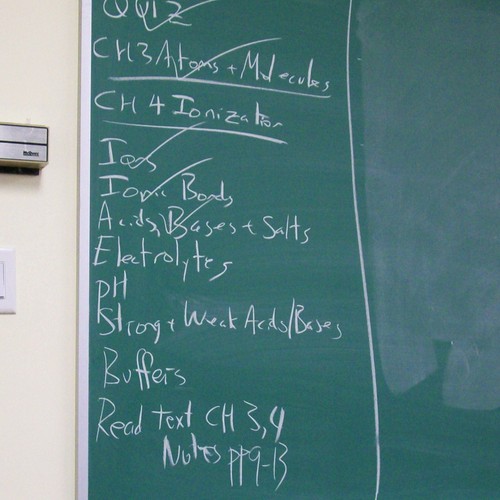 QQ1Z
CH3 Atoms + Molecules
CH 4 Ionization
Ions
Ionic Bonds
Acids, Bases + Salts
Electrolytes
pH
Strong + Weak Acids/Bases
Buffers
Read text CH 3,4
Notes pp9-13